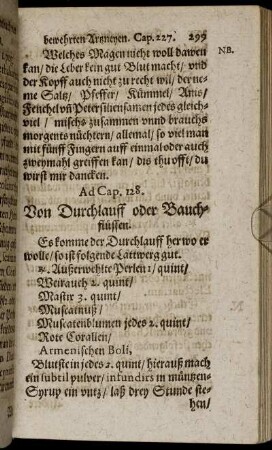 bewehrten Artzneyen. Cap. 227. 299
Welches Magen nicht woll dawen
kan/ die Leber kein gut Blut macht/ vnd
der Kopff auch nicht zu recht wil/ der ne-
me Saltz/ Pfeffer/ Kümmel/ Anis/
Fenchel vñ Petersiliensamen jedes gleich-
viel/ mischs zusammen vnnd brauchs
morgents nüchtern/ allemal/ so viel man
mit fünff Fingern auff einmal oder auch
zweymahl greiffen kan/ dis thu offt/ du
wirst mir dancken.
NB.
Ad Cap. 128.
Von Durchlauff oder Bauch-
flüssen.
Es komme der Durchlauff her wo er
wolle/ so ist folgende Lattwerg gut.
℞. Außerwehlte Perlen 1/ quint/
Weirauch 2. quint/
Mastix 3. quint/
Muscatnuß/
Muscatenblumen jedes 2. quint/
Rote Coralien/
Armenischen Boli,
Blutstein jedes 1. quint/ hierauß mach
ein subtil pulver/ infundirs in müntzen-
Syrup ein vntz/ laß drey Stunde ste-
hen/